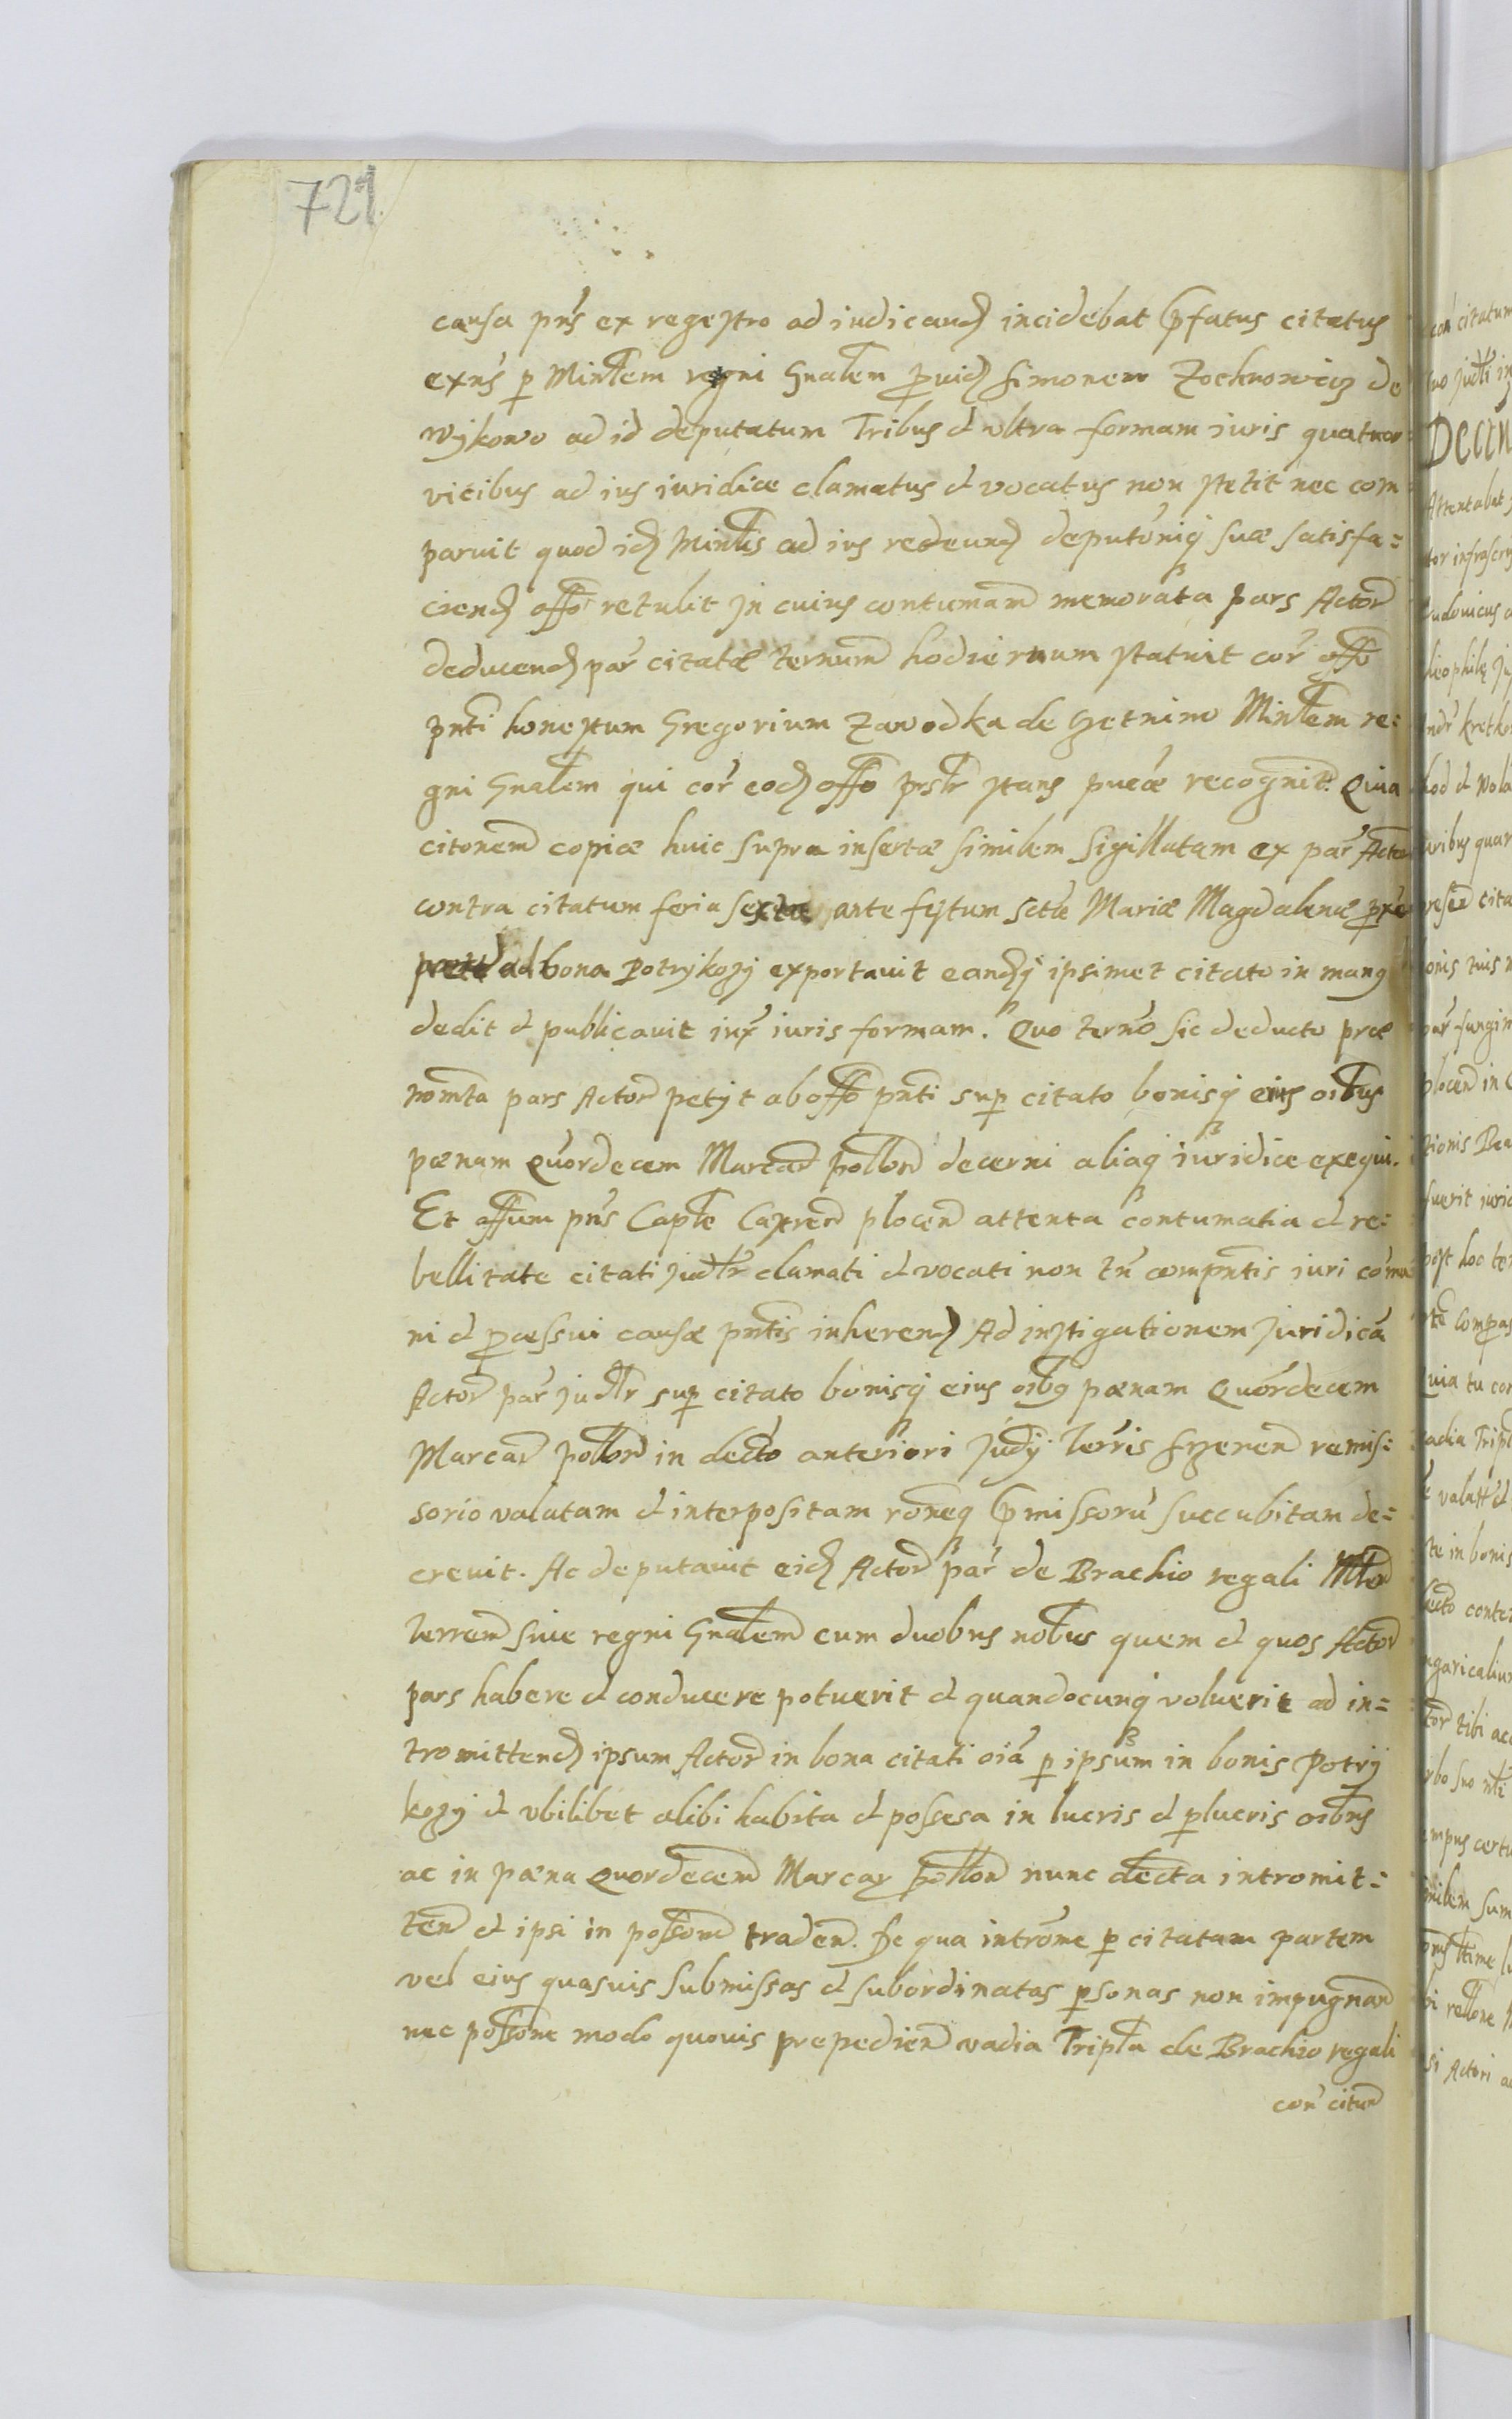 721
causa pns ex regestro ad iudicand incidebat pfatus citatus
exns p Minlem regni Gnalem pvid Simonem Zochnowicz de
Wykowo ad id deputatum Tribus et ultra formam iuris quatuor
vicibus ad ius iuridice clamatus et vocatus non stetit nec com
paruit quod id Minlis ad ius redeund deputoniq suæ satisfa=
ciend offo retulit in cuius contumam memorata pars Actor
deducend par citatæ ternum hodiernum statuit cor offo
pnti honestum Gregorium Zawodka de Gzetnino Minlem re=
gni Gnalem qui cor eod offo pnslr stans puce recognit. Quia
citonem copiæ huic supra insertæ similem sigillatam ex par Actor
contra citatum feria sexta ante festum sctæ Mariæ Magdalenæ pxe
ad bona Potrykozy exportavit eandq ipsimet citato in manq
dedit et publicavit iux iuris formam. Quo terno sic deducto præ
nomta pars Actor petyt ab offo pnti sup citato bonisq eius oibus
pænam Quordecem Marcar pollon decerni aliaq iuridice exequi.
Et offum pns Caple Castren plocen attenta contumatia et re=
bellitate citati judlr clamati et vocati non tn compntis iuri comu
ni et pcessui causæ pntis inherend Ad instigationem juridica
Actor par judlr sup citato bonisq eius oibq pænam Quordecem
Marcar pollon in decto anteriori Judy terris Szrenen remis=
sorio valatam et interpositam roneq pmissoru succubitam de=
crevit. Ac deputavit eid Actor par de Brachio regali Mlem
terrem sive regni Gnalem cum duobus nobus quem et quos Actor
pars habere et conducere potuerit et quandocunq voluerit ad in=
tromittend ipsum Actor in bona citati oia p ipsum in bonis Potry
kozy et ubilibet alibi habita et possesa in lucris et plucris oibus
ac in pæna Quordecem Marcar pollon nunc decta intromit=
ten et ipsi in possom traden. De qua introme p citatam partem
vel eius quasvis submissas et subordinatas psonas non impugnan
nec possone modo quovis prepedien vadia Tripla de Brachio regali
con citum